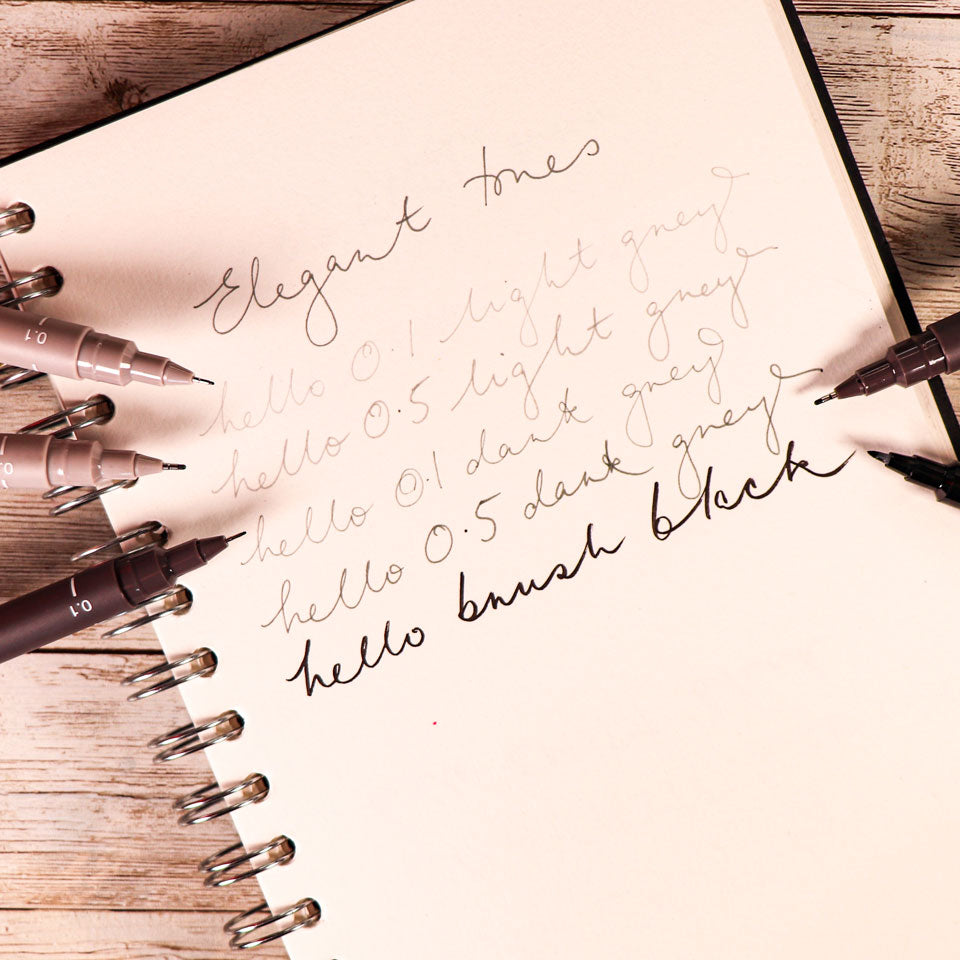 Elegant tones
hello 0.1 light grey
hello 0.5 light grey
hello 0.1 dark grey
hello 0.5 dark grey
hello brush black
0.1
0.1